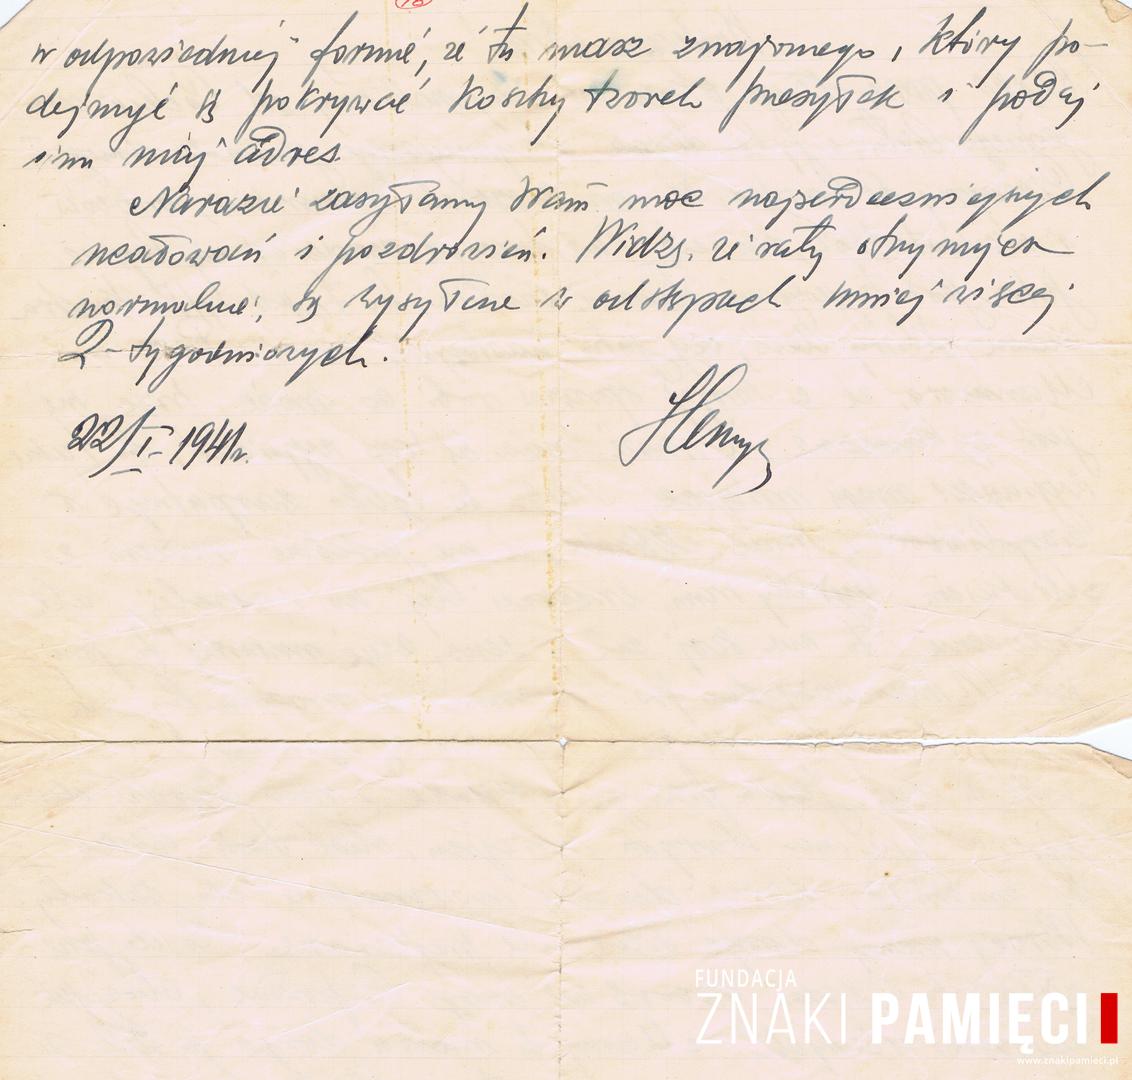 w odpowiedniej formie, że tu masz znajomego, który po-
dejmyć się pokrywać koszty tzorch przesyłek i podaj
imu mój adres
Narazie zasyłamy Wam moc najserdeczniejszych
ucałowań i pozdrowień. Widzę, że raty otrzymujesz
normalnie, są wysyłane w odstępach mniej więcej
2-tygodniowych.
22/I-1941r. Henryk
FUNDACJA
ZNAKI PAMIĘCI
www.znakipamieci.pl